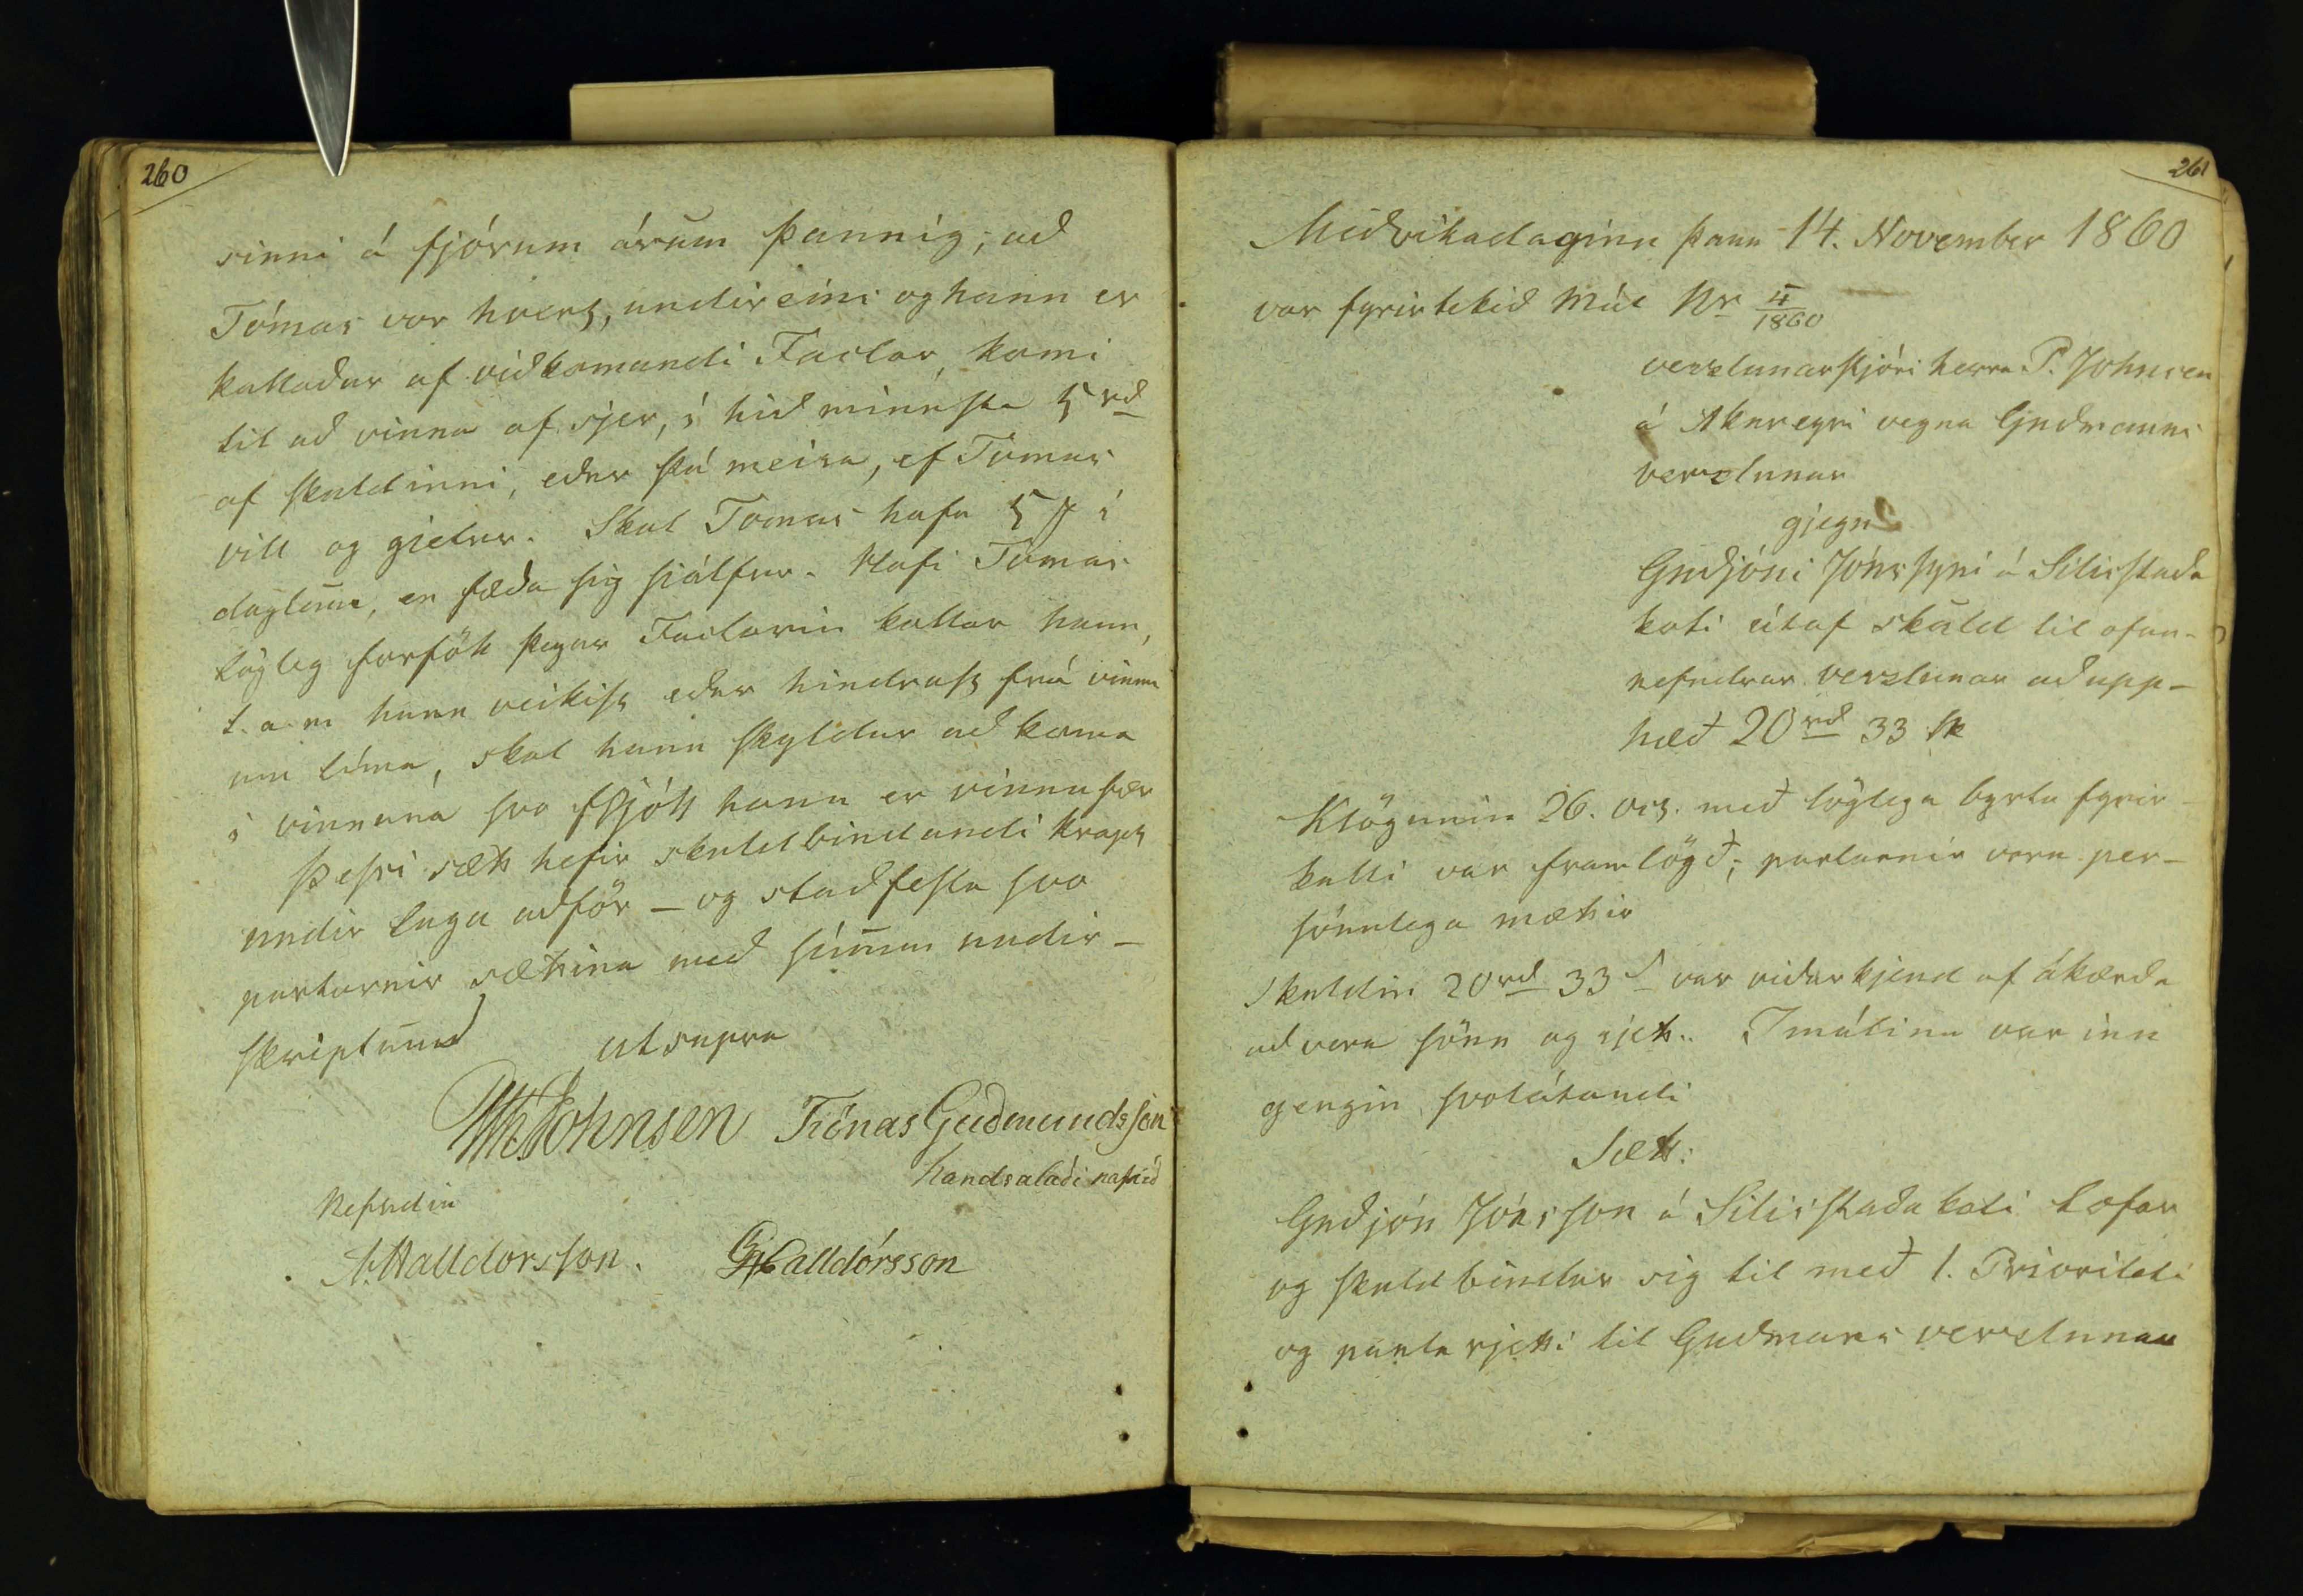 260
sinni á fjórum árum þannig; að
Tómas vor hvert, undireins og hann er
kallaður af viðkomandi Factor, komi
til að vinna af sjer, í hið minnsta 5 rd
af skuldinni, eður þá meira, ef Tomas
vill og gietur. Skal Tomas hafa 5 # í
daglaun, en fæða sig sjálfur. Hafi Tomas
lögleg forföll þegar Factorin kallar hann,
t.a.m hann veikist eður hindrast frá vinnu
um tíma, skal hann skyldur að koma
í vinnuna svo fljótt hann er vinnufær
Þessi sætt hefir skuldbindandi krapt
undir laga aðför – og staðfesta svo
partarnir sættina með sínum undir-
skriptum
ut supra
Johnsen Tómas Guðmundsson
handsalaði nafnið
Nefndin
A. Halldorsson. G Halldórsson
261
Miðvikudaginn þann 14. November 1860
var fyrirtekið Mál Nr 5/1860
verzlunarstjóri herra P. Johnsen
á Akureyri vegna Guðmanns
verzlunar
gjegn
Guðjóni Jónssyni á Silistaða
koti útaf skuld til ofan-
nefndrar verzlunar að upp-
hæð 20 rd 33 sk
Klögunin 26. oct. með löglega byrtu fyrir-
kalli var framlögð; partarnir voru per-
sónulega mættir
Skuldin 20 rd 33 s var viðurkjend af ákærða
að vera sönn og rjett. I málinu var inn
gengin svolátandi
Sætt:
Guðjón Jónsson á Silistaðakoti lofar
og skuldbindur sig til með 1. Prioriteti
og panta rjetti til Guðmans verzlunar